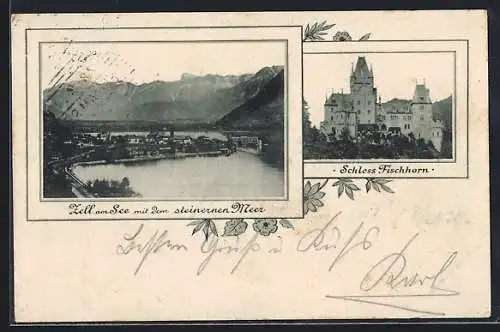 Zell am See mit dem steinernen Meer
· Schloss Fischhorn ·
Besten Gruß u Kuß
Karl